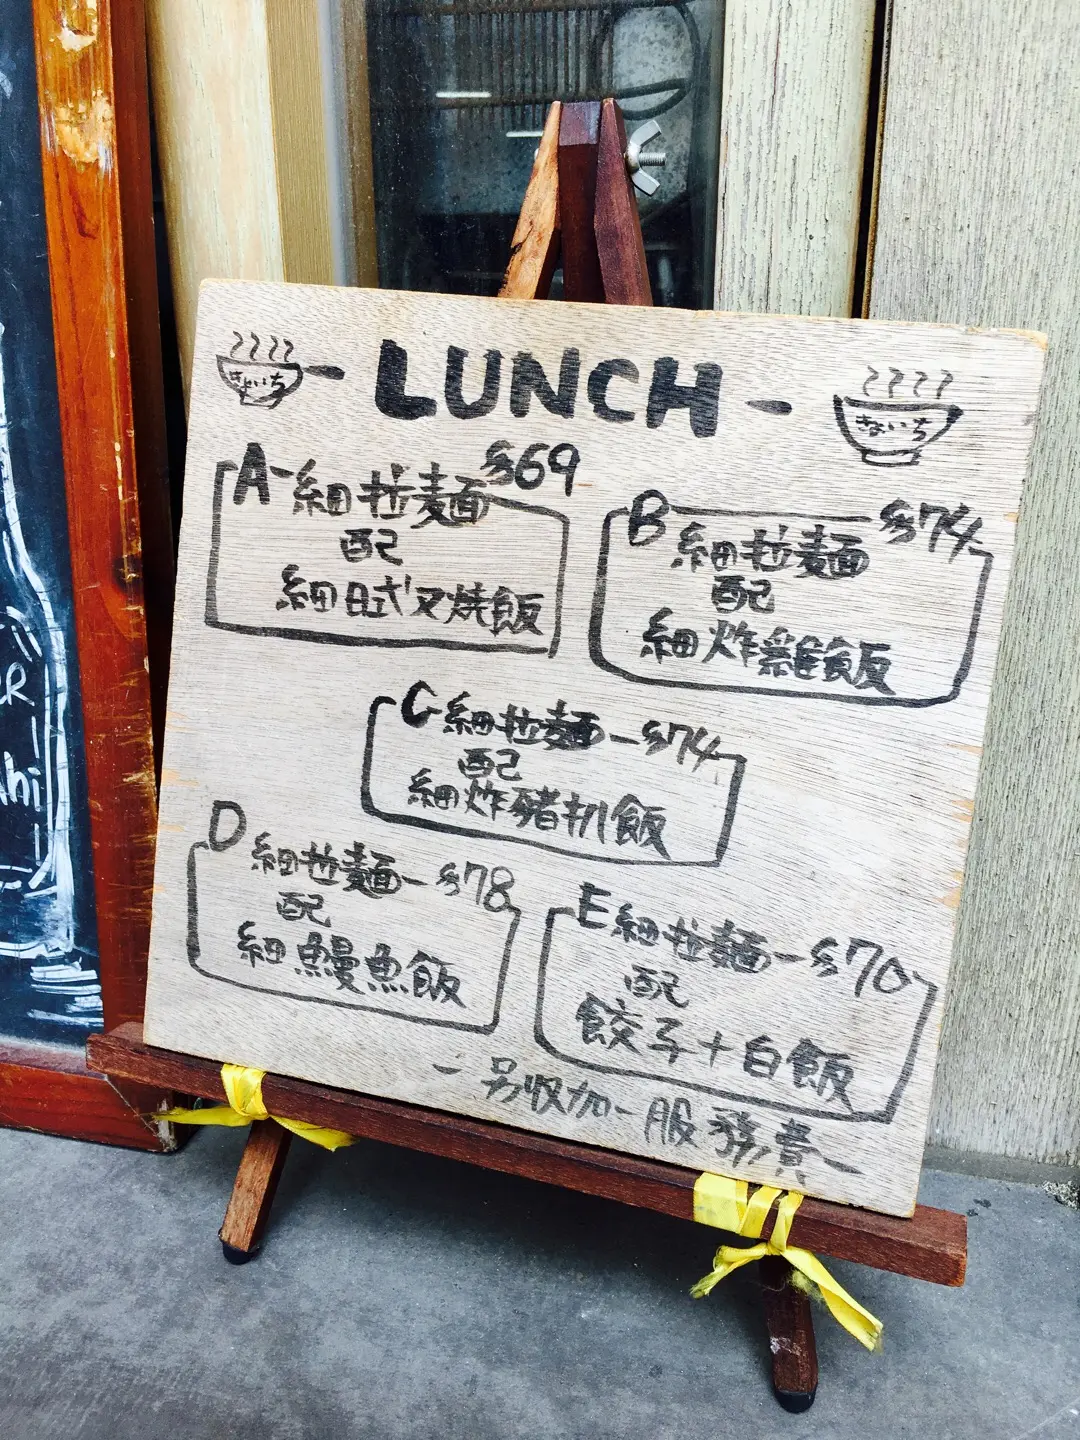 - LUNCH -
A-細拉麵 $69
配
細日式叉燒飯
B 細拉麵 $74
配
細炸雞飯
C 細拉麵-$74
配
細炸豬扒飯
D 細拉麵-$78
配
細鰻魚飯
E 細拉麵-$70
配
餃子+白飯
-另收加一服務費-